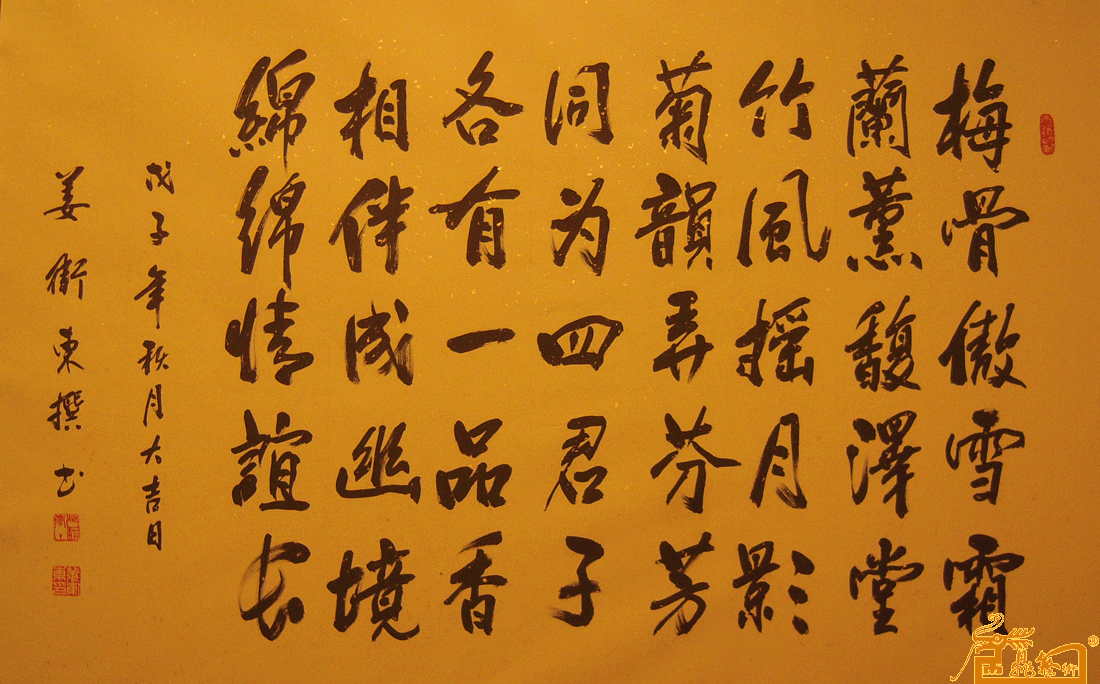 梅骨傲雪霜
蘭薰馥澤堂
竹風摇月影
菊韻弄芬芳
同为四君子
各有一品香
相伴成幽境
綿綿情誼长
戊子年秋月大吉日
姜衛東撰书